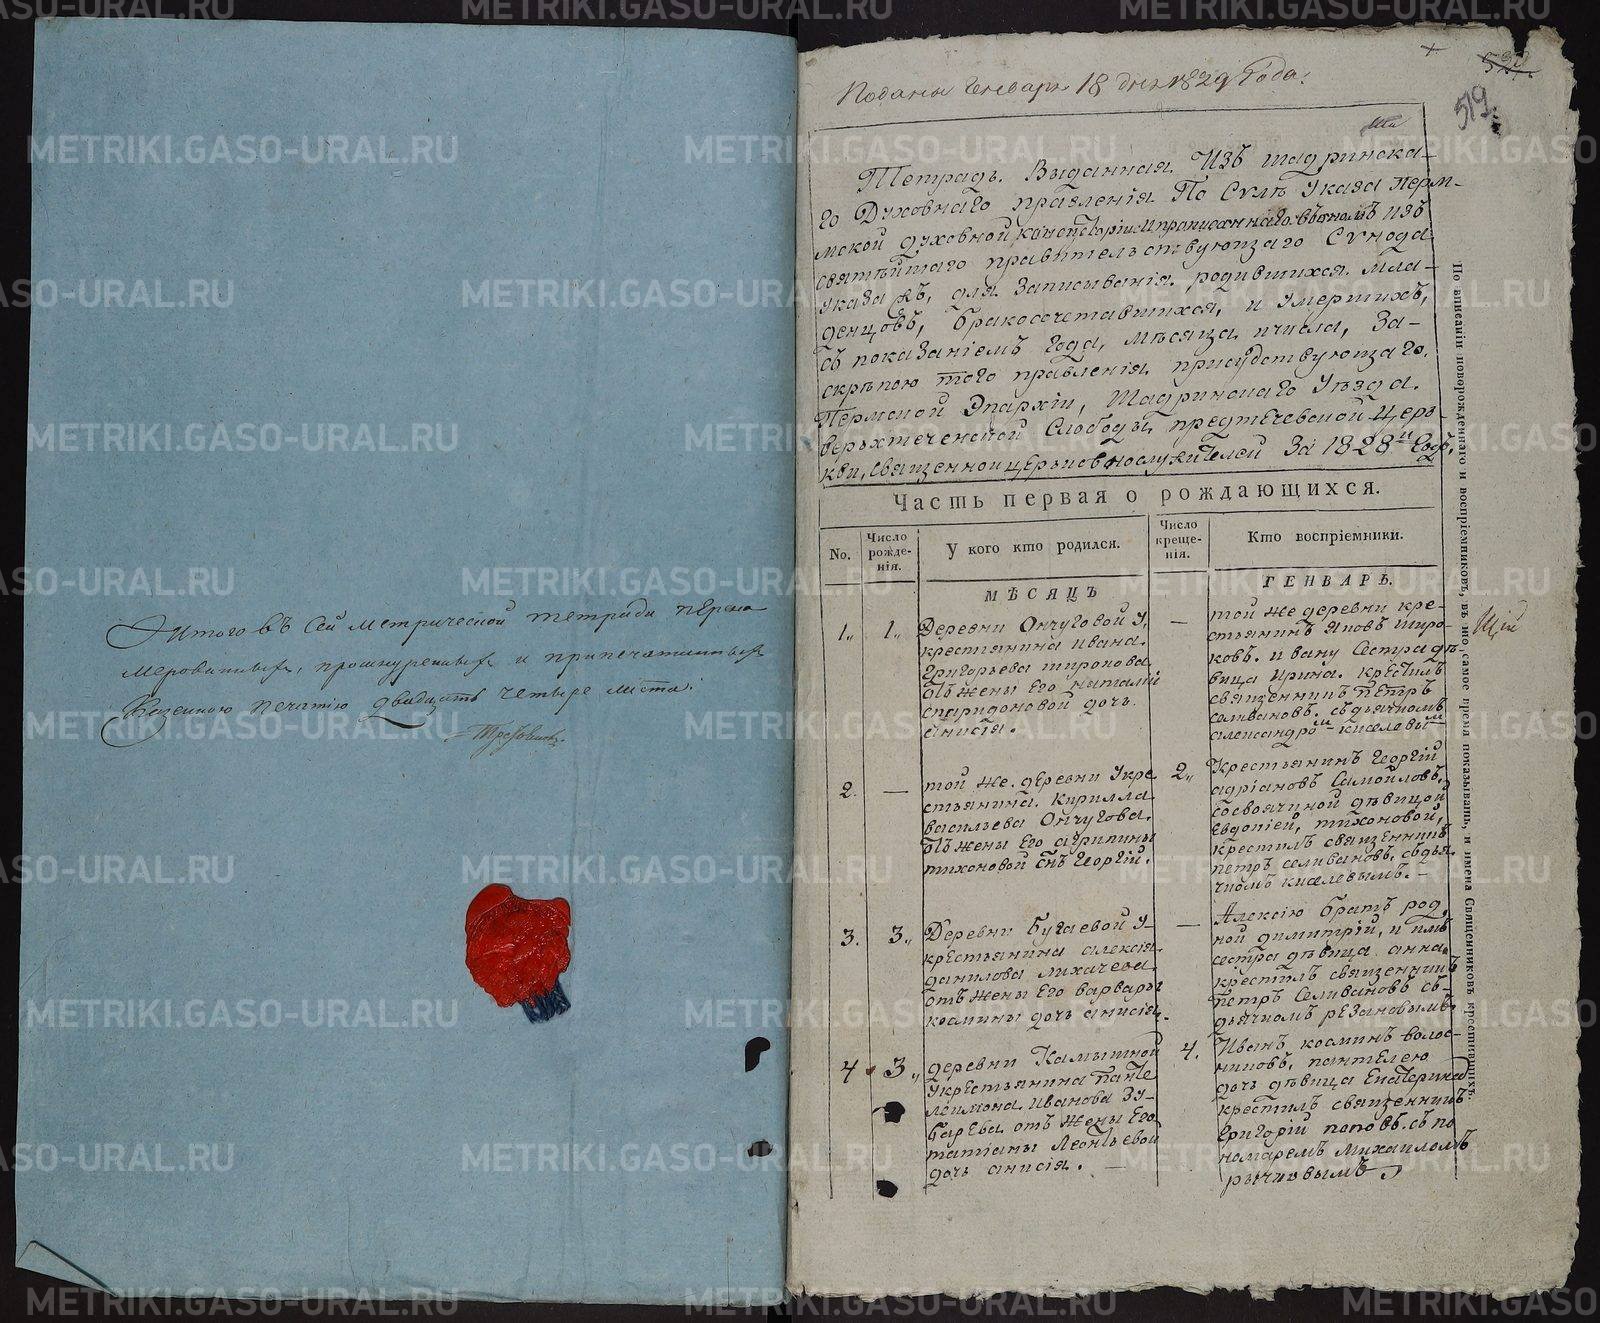 Итого въ сей метрической тетради перену
мерованныхъ, прошнуренныхъ и припечатанныхъ
казенною печатью двадцать четыре листа.
Поданы Генваря 18 дня 1829 Года.
519
Тетрадь. Выданная. Изъ шадринска-
го Духовнаго правленія. По Силѣ Указа Перм-
мской духовной консисторіи и прописаннаго въ ономъ изъ
святѣйшаго правительствующаго Сѵнода
указахъ, для записыванія родившихся мла-
денцовъ, бракосочетавшихся, и умершихъ,
съ показаніемъ года, мѣсяца и числа, За-
скрѣпою того правленія присудствующаго.
Пермской Епархіи, Шадринскаго Уѣзда.
верьхтеченской Слободы предтечевской цер-
кви, священноицерьковнослужителей За 1828й Годъ.
Часть первая о рождающихся.
No.
Число рожде-нія.
У кого кто родился.
Число креще-нія.
Кто воспріемники.
МѢСЯЦЪ
ГЕНВАРЬ.
1,,
1,,
Деревни Ончуговой У
крестьянина ивана.
Григорьева широкова
отъ жены Его наталіи
спиридоновой дочь
анисія.
—
той же деревни кре-
стьянинъ яковъ широ-
ковъ. и вану сестра дѣ
вица ирина. крестилъ
священникъ петръ
селивановъ. съ дьячкомъ
александромъ киселевымъ
2.
—
той же. деревни Укре
стьянина. кирилла
васильева Ончугова.
отъ жены Его агрипины
тихоновой сынъ георгій.
2,,
Крестьянинъ георгій
адріановъ Самойловъ,
сосвоячиной дѣвицой
евдокіей, тихоновой,
крестилъ священникъ
петръ селивановъ. съ дья
чкомъ киселевымъ. —
3.
3,,
Деревни Бугаевой У-
крестьянина алексія
данилова лихачева.
отъ жены Его варвары
космины дочь анисія.
—
Алексію братъ род
ной димитрій, и имъ
сестра дѣвица анна.
крестилъ священникъ
петръ Селивановъ съ-
дьячкомъ резановымъ.
4
3,,
деревни Камышной
Укрестьянина панте
леимона. иванова Зу-
барева. отъ жены Его
татіаны леонтьевой
дочь анисія.
4.
Иванъ косминъ волос-
никовъ, пантелею
дочь дѣвица Екатерина
крестилъ священникъ
григорій поповъ. съ по
номаремъ михаиломъ
рычковымъ
По вписаніи новорожденнаго и воспріемниковъ, въ то самое время показывать, и имена Священниковъ крестившихъ.
METRIKI.GASO-URAL.RU